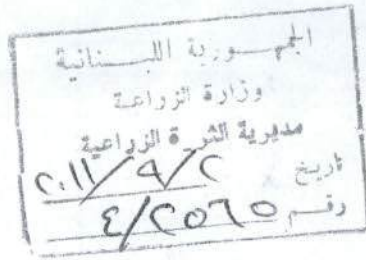 الجمهورية اللبنانية
وزارة الزراعة
مديرية الثروة الزراعية
تاريخ ٢٠١١/٩/٢
رقم ٤/٢٥٦٥